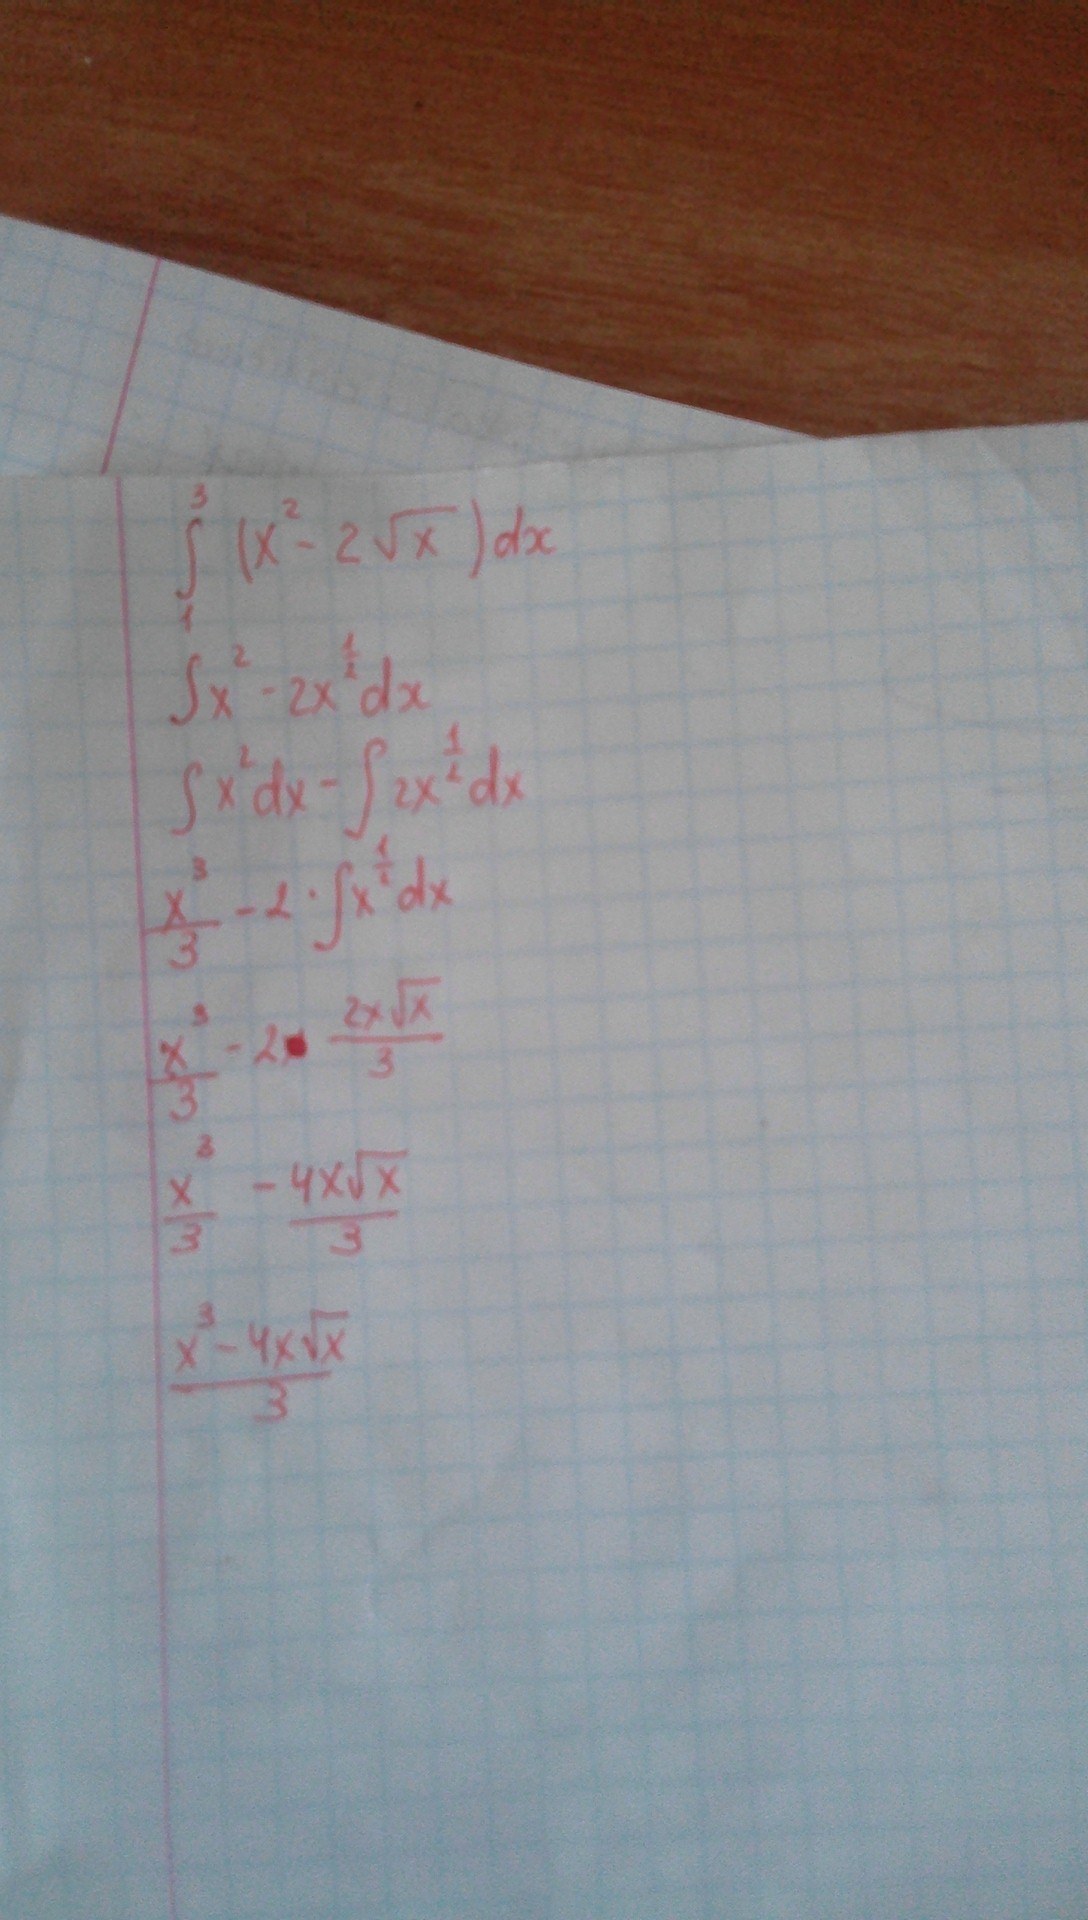 ∫₁³ (x² - 2√x)dx
∫x² - 2x^(1/2)dx
∫x²dx - ∫2x^(1/2)dx
x³/3 - 2·∫x^(1/2)dx
x³/3 - 2· 2x√x/3
x³/3 - 4x√x/3
(x³ - 4x√x)/3